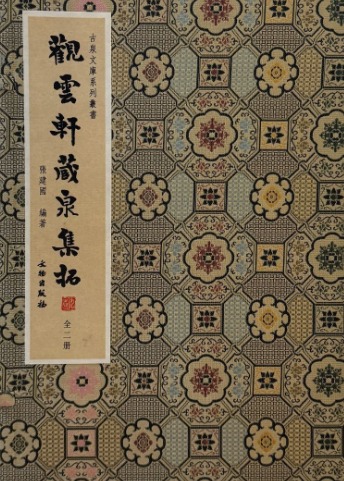 古泉文庫系列叢書
觀雲軒藏泉集拓
張建國 編著
文物出版社
全二册